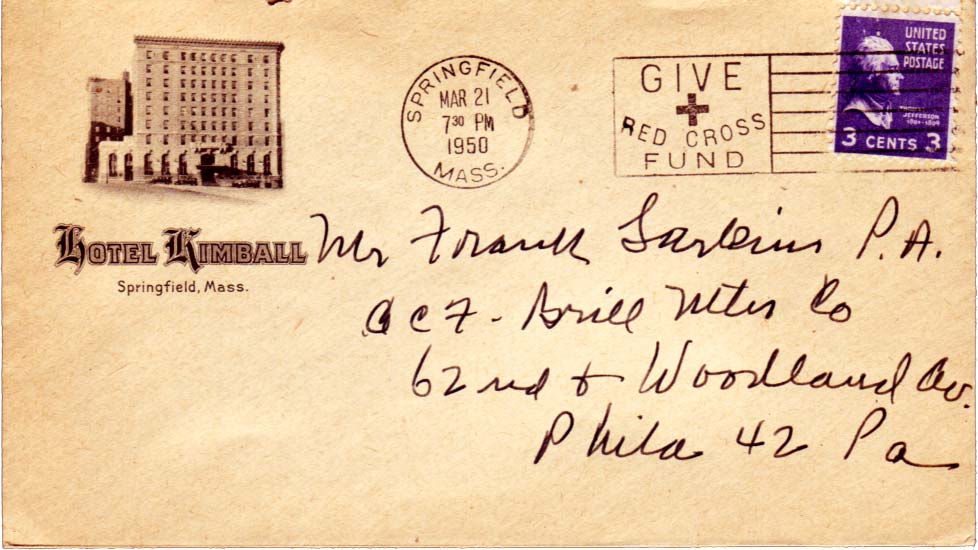 HOTEL KIMBALL
Springfield, Mass.
SPRINGFIELD
MAR 21
7 30 PM
1950
MASS.
GIVE
RED CROSS
FUND
UNITED
STATES
POSTAGE
THOMAS
JEFFERSON
1801-1809
3 CENTS 3
Mr Frank P.A.
a c f - Brill Mtrs Co
62nd & Woodland Av.
Phila 42 Pa